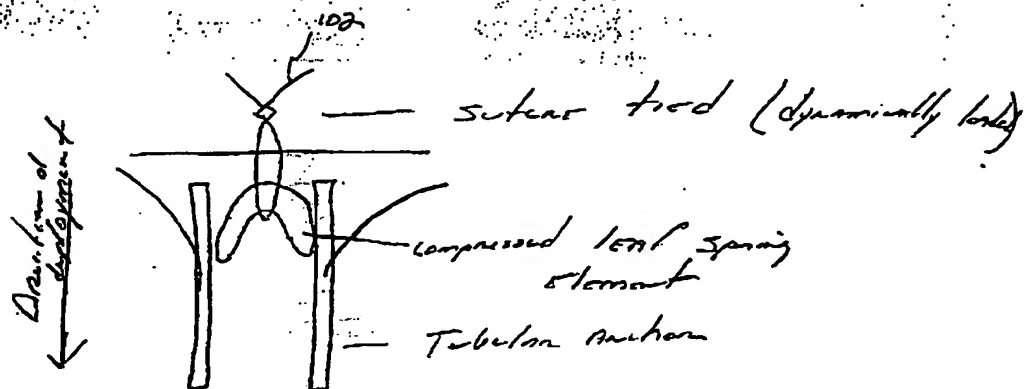 102
suture tied (dynamically loaded)
Direction of
deployment
compressed leaf spring
Element
Tubular Anchor